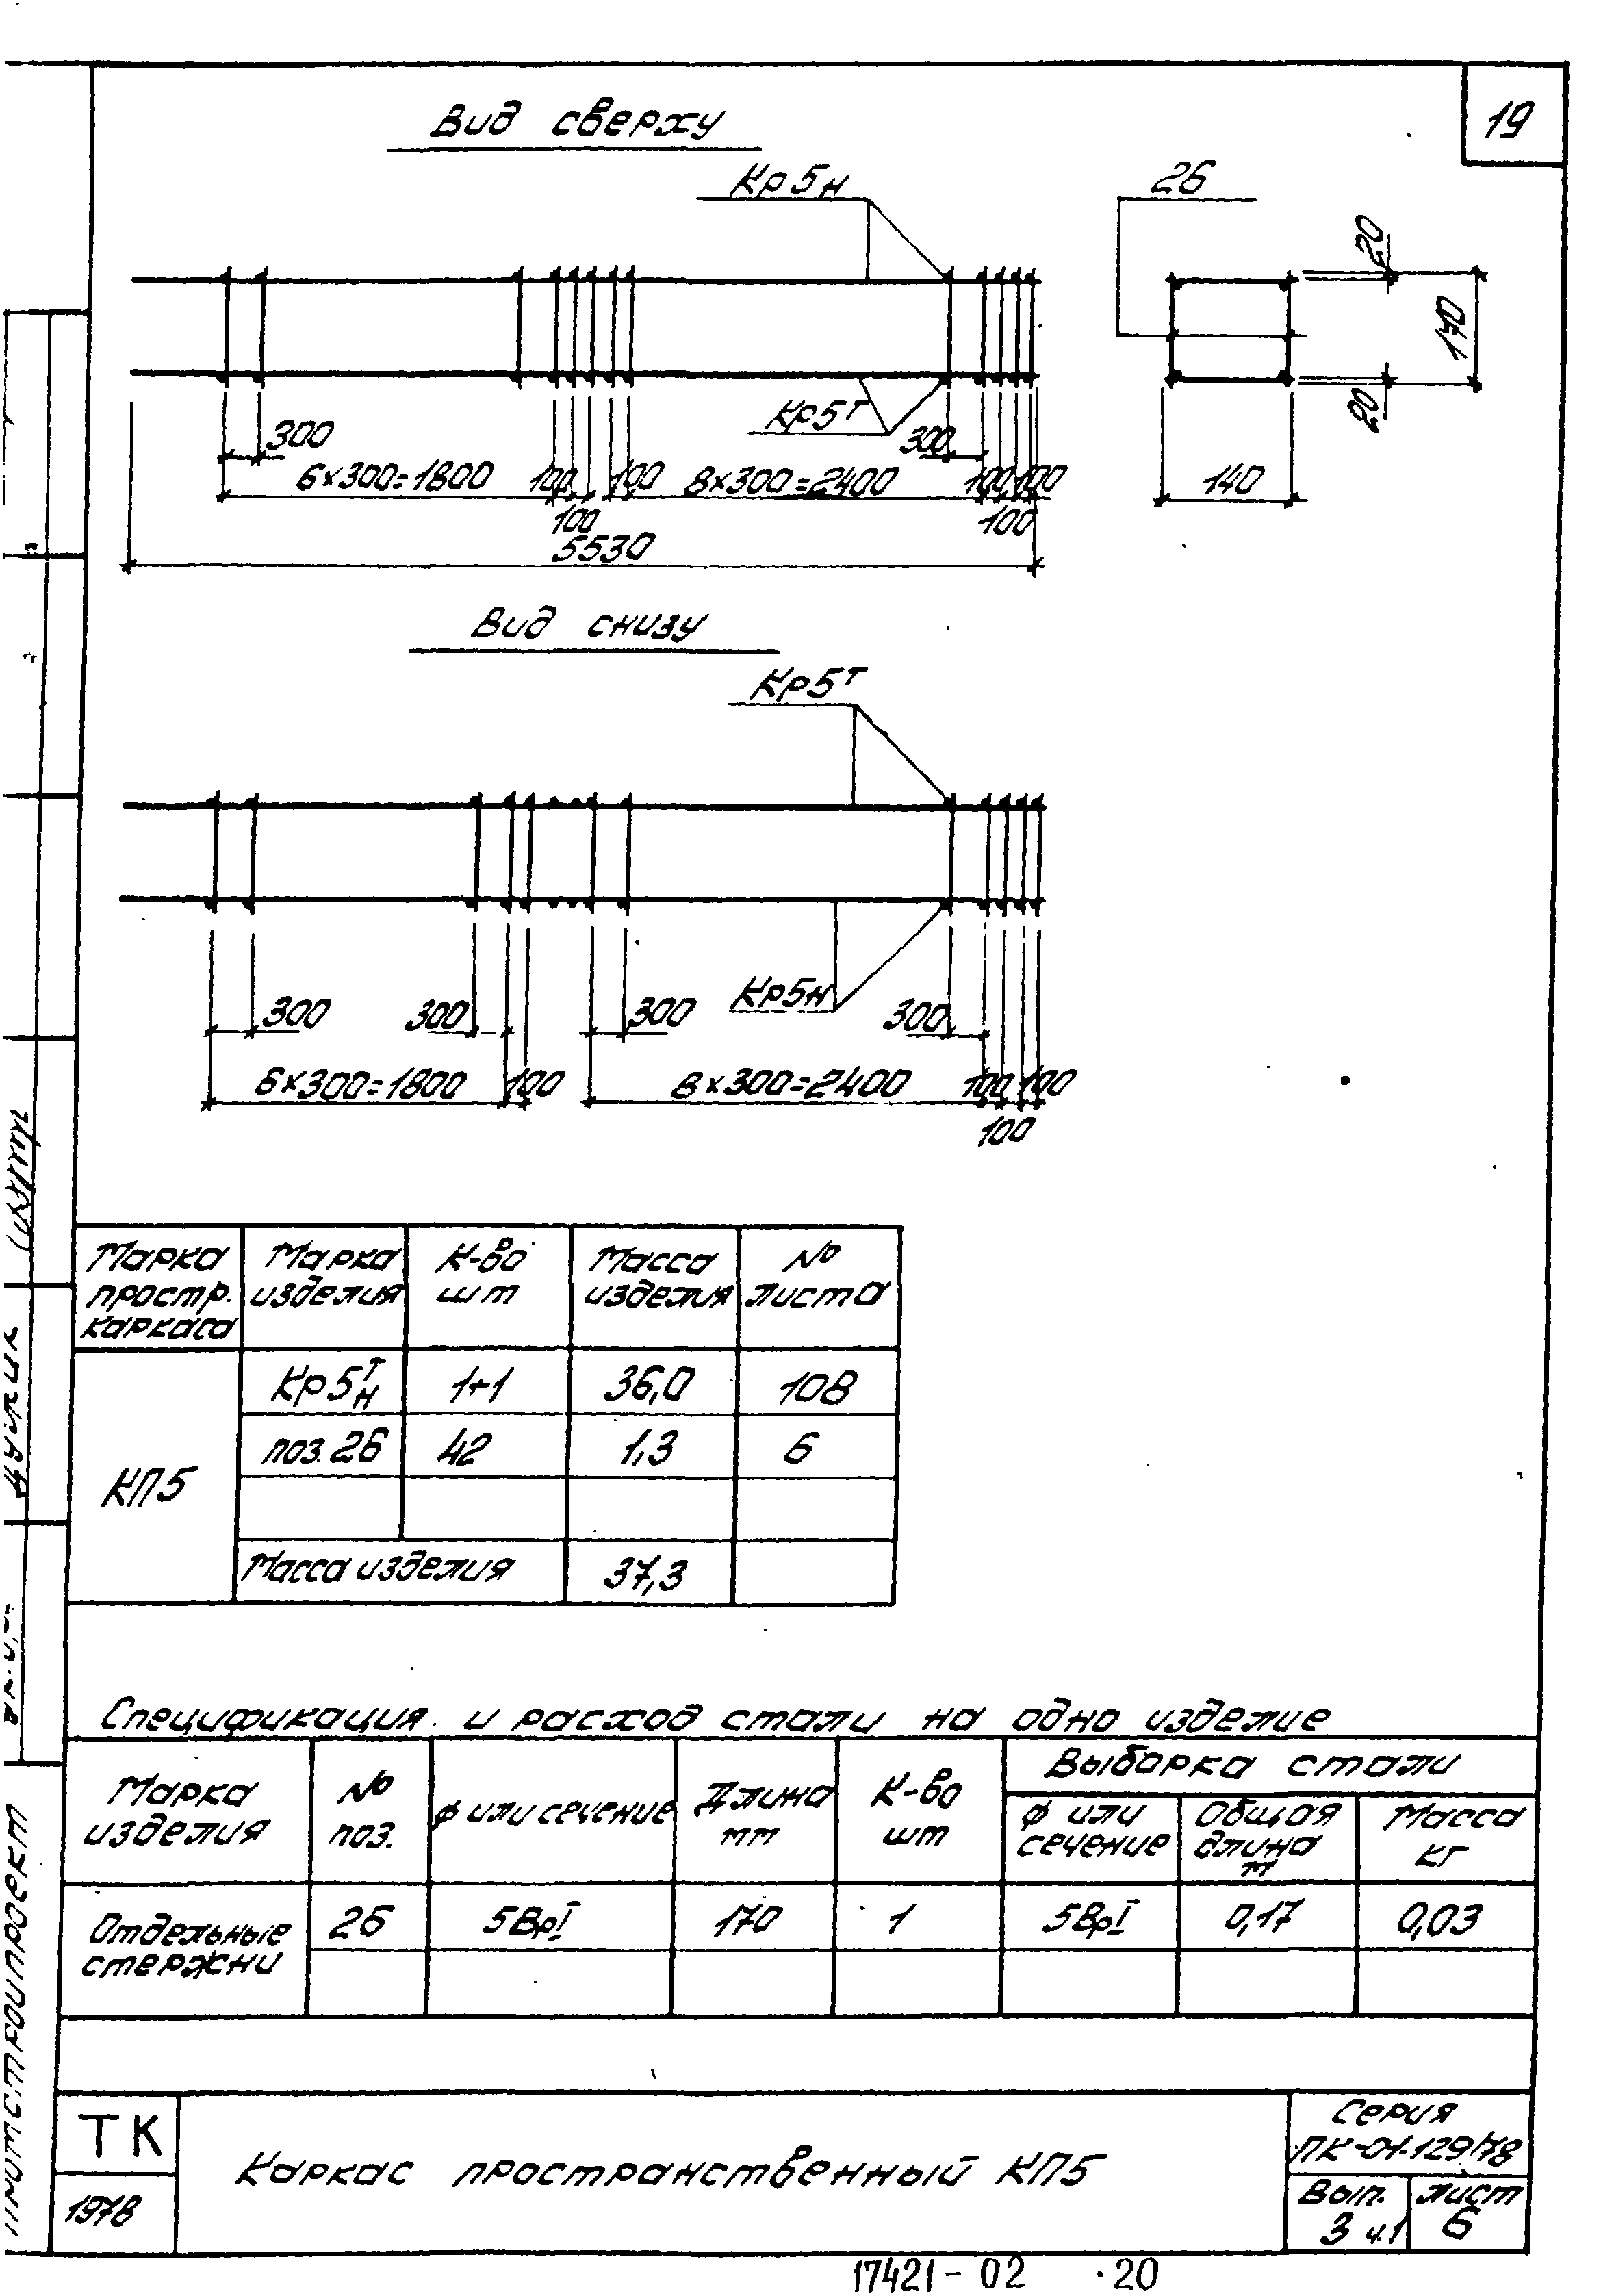 19
Вид сверху
Кр5н
26
20
170
20
140
Кр5т
300
300
6×300=1800
100
100
8×300=2400
100
100
100
100
5530
Вид снизу
Кр5т
Кр5н
300
300
300
300
6×300=1800
100
8×300=2400
100
100
100
Марка простр. каркаса
Марка изделия
К-во шт
Масса изделия
№ листа
КП5
Кр5 т н
1+1
36,0
108
поз. 26
42
1,3
6
Масса изделия
37,3
Спецификация и расход стали на одно изделие
Марка изделия
№ поз.
ф или сечение
Длина мм
К-во шт
Выборка стали
ф или сечение
Общая длина м
Масса кг
Отдельные стержни
26
5ВрI
170
1
5ВрI
0,17
0,03
ТК
1978
Каркас пространственный КП5
Серия
ПК-01-129/78
Вып.
3 ч.1
лист
6
17421-02
20